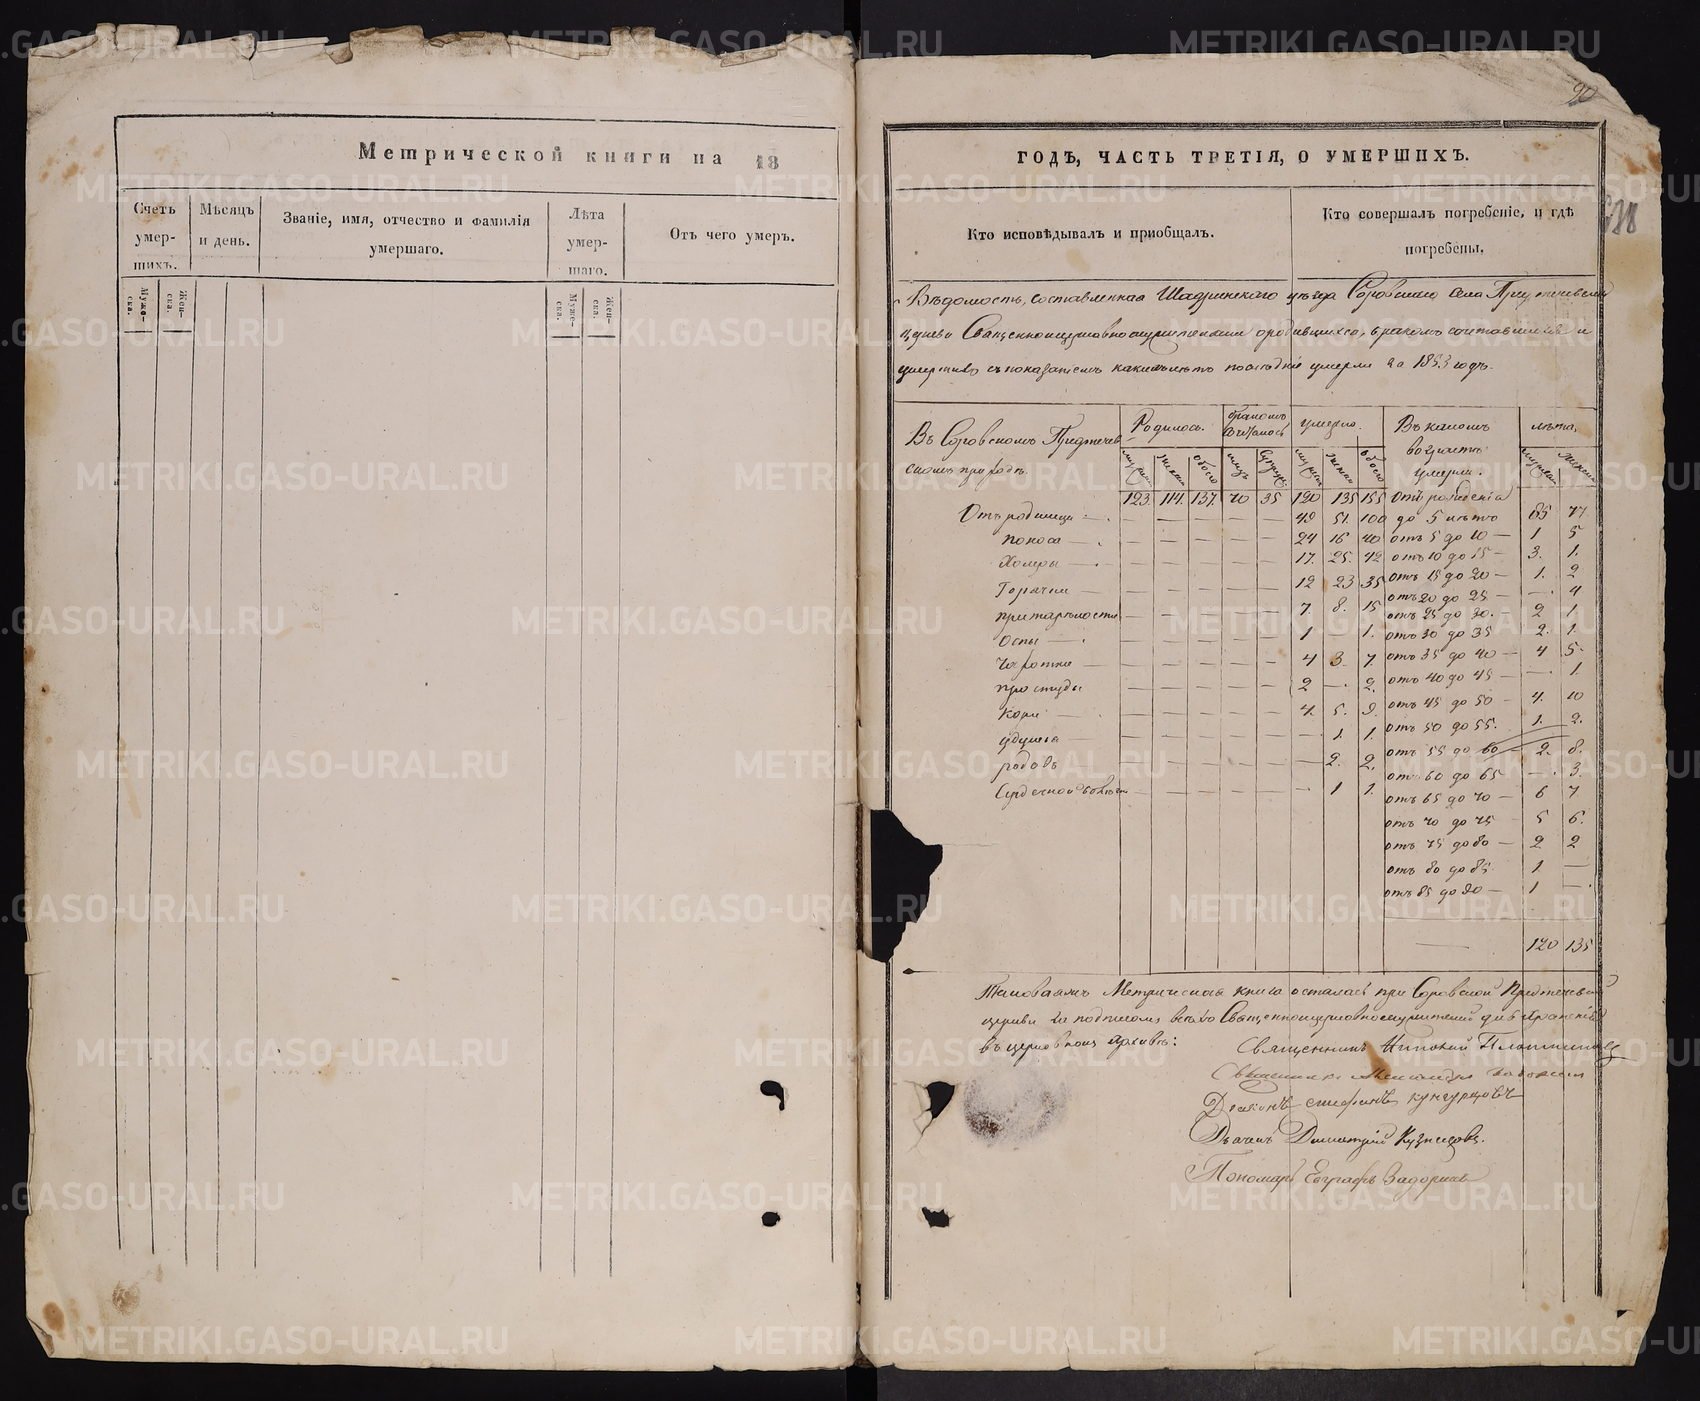 Метрической книги на 18
Счетъ умер-шихъ.
Муже-ска.
Жен-ска.
Мѣсяцъ и день.
Званіе, имя, отчество и фамилія умершаго.
Лѣта умер-шаго.
Муже-ска.
Жен-ска.
Отъ чего умеръ.
90
ГОДЪ, ЧАСТЬ ТРЕТІЯ, О УМЕРШИХЪ.
Кто исповѣдывалъ и пріобщалъ.
Кто совершалъ погребеніе, и гдѣ погребены.
Вѣдомость, составленная Шадринскаго уѣзда Соровскаго села Предтечевской
церкви Священноцерковнослужителями о родившихся, бракомъ сочетавшихся и
умершихъ съ показаніемъ какихъ лѣтъ послѣдніе умерли за 1853 годъ.
Въ Соровскомъ Предтечев
скомъ приходѣ.
Родилось.
бракомъ сочеталось
умерло.
Въ какомъ возрастѣ умерли.
лѣта.
123. 114. 137. 70 35 120 135 155 отъ рожденія
Отъ родимца — — — — — 49 51. 100 до 5 лѣтъ 85 77
поноса — — — — — 24 16 40 отъ 5 до 10 — 1 5
Холеры — — — — — 17. 25. 42 отъ 10 до 15 — 3. 1.
Горячки — — — — — 12 23 35 отъ 15 до 20 — 1. 2
отъ 20 до 25 — — 4
престарѣлости — — — — — 7. 8. 15 отъ 25 до 30. 2 1.
Оспы — — — — — 1 — 1. отъ 30 до 35 2. 1.
Чахотки — — — — — 4 3. 7. отъ 35 до 40 — 4 5.
простуды — — — — — 2 — 2. отъ 40 до 45 — — 1.
Кори — — — — — 4. 5. 9. отъ 45 до 50 — 4. 10
удушья — — — — — — 1. 1. отъ 50 до 55. 1. 2.
родовъ — — — — — — 2. 2. отъ 55 до 60 — 2. 8.
отъ 60 до 65 — — 3.
Сердечной болѣзни — — — — — — 1 1. отъ 65 до 70 — 6 7
отъ 70 до 75 5 6.
отъ 75 до 80 — 2 2
отъ 80 до 85 1. —
отъ 85 до 90 — 1 —
— 120 135
Таковаяжъ Метрическая книга осталась при Соровской Предтечевской
церкви за подписомъ всѣхъ Священноцерковнослужителей для храненія
въ церковномъ архивѣ:
Священникъ
Священникъ
Діаконъ Стефанъ Кунгурцовъ
Дьячекъ Димитрій Кузнецовъ.
Пономарь Евграфъ Задоринъ
METRIKI.GASO-URAL.RU